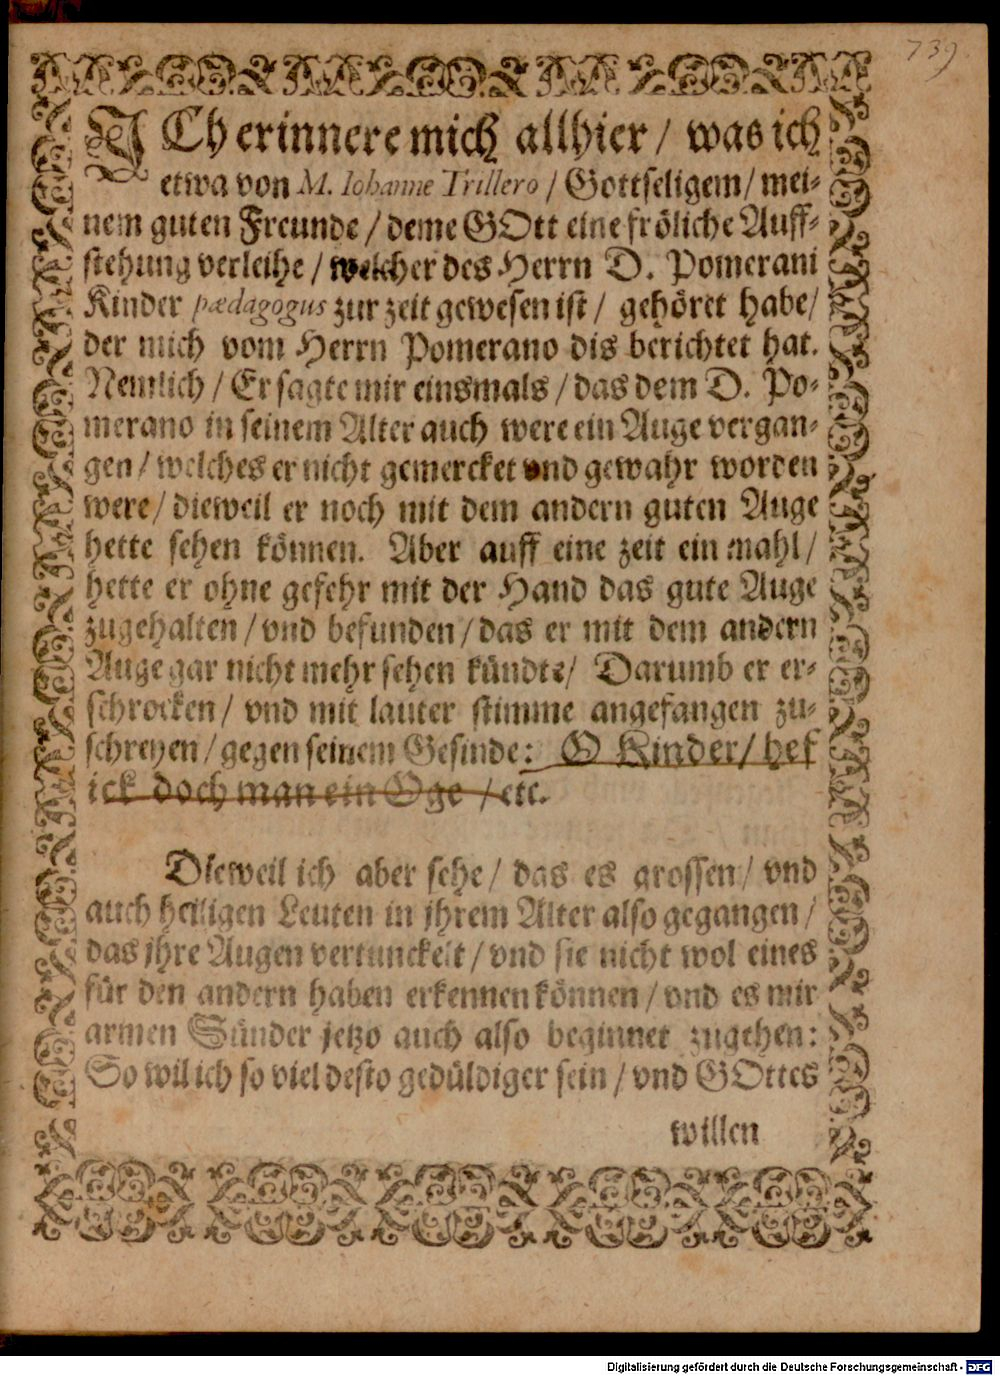 739
ICh erinnere mich allhier / was ich
etwa von M. Iohanne Trillero / Gottseligem / mei-
nem guten Freunde / deme GOtt eine fröliche Auff-
stehung verleihe / welcher des Herrn D. Pomerani
Kinder pædagogus zur zeit gewesen ist / gehöret habe /
der mich vom Herrn Pomerano dis berichtet hat.
Nemlich / Er sagte mir einsmals / das dem D. Po-
merano in seinem Alter auch were ein Auge vergan-
gen / welches er nicht gemercket vnd gewahr worden
were / dieweil er noch mit dem andern guten Auge
hette sehen können. Aber auff eine zeit ein mahl /
hette er ohne gefehr mit der Hand das gute Auge
zugehalten / vnd befunden / das er mit dem andern
Auge gar nicht mehr sehen kündte / Darumb er er-
schrocken / vnd mit lauter stimme angefangen zu-
schreyen / gegen seinem Gesinde: O Kinder / hef
ick doch man ein Oge / etc.
DIeweil ich aber sehe / das es grossen / vnd
auch heiligen Leuten in jhrem Alter also gegangen /
das jhre Augen vertunckelt / vnd sie nicht wol eines
für den andern haben erkennen können / vnd es mir
armen Sünder jetzo auch also beginnet zugehen:
So wil ich so viel desto gedüldiger sein / vnd GOttes
willen
Digitalisierung gefördert durch die Deutsche Forschungsgemeinschaft - DFG